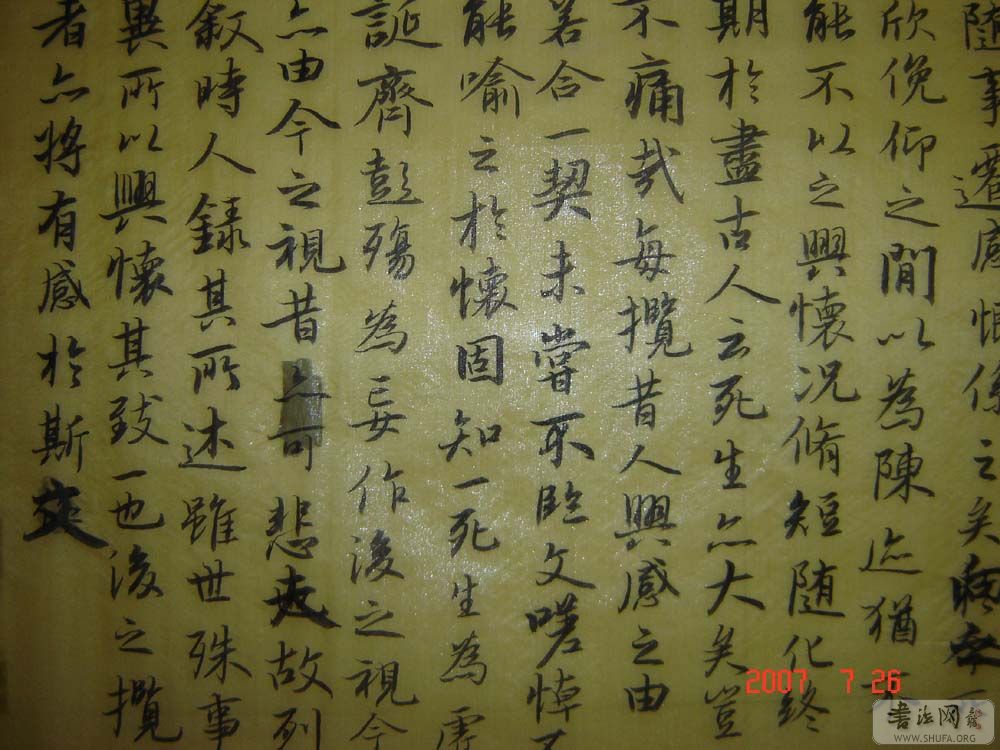 隨事遷感慨係之矣
欣俛仰之閒以為陳迹猶不
能不以之興懷況脩短隨化終
期於盡古人云死生亦大矣豈
不痛哉每攬昔人興感之由
若合一契未嘗不臨文嗟悼不
能喻之於懷固知一死生為虛
誕齊彭殤為妄作後之視今
亦由今之視昔之可悲夫故列
敘時人錄其所述雖世殊事
異所以興懷其致一也後之攬
者亦將有感於斯文
2007 7 26
書法网
WWW.SHUFA.ORG